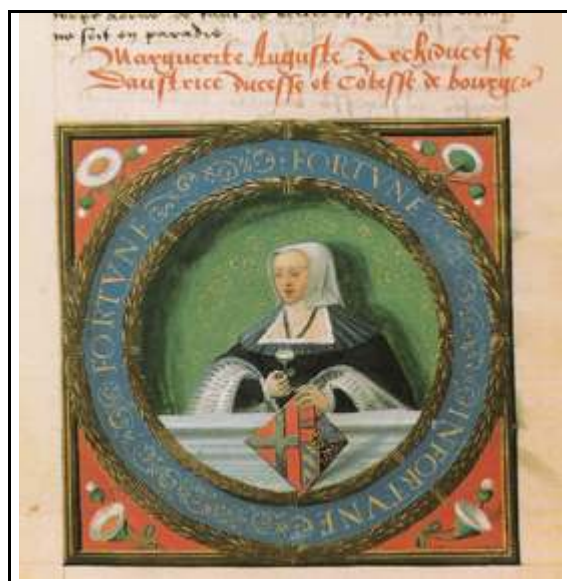 ne soit en paradis
Marguerite Auguste Archiducesse
Daustrice ducesse et Cotesse de bourg
FORTVNE
INFORTVNE
FORTVNE